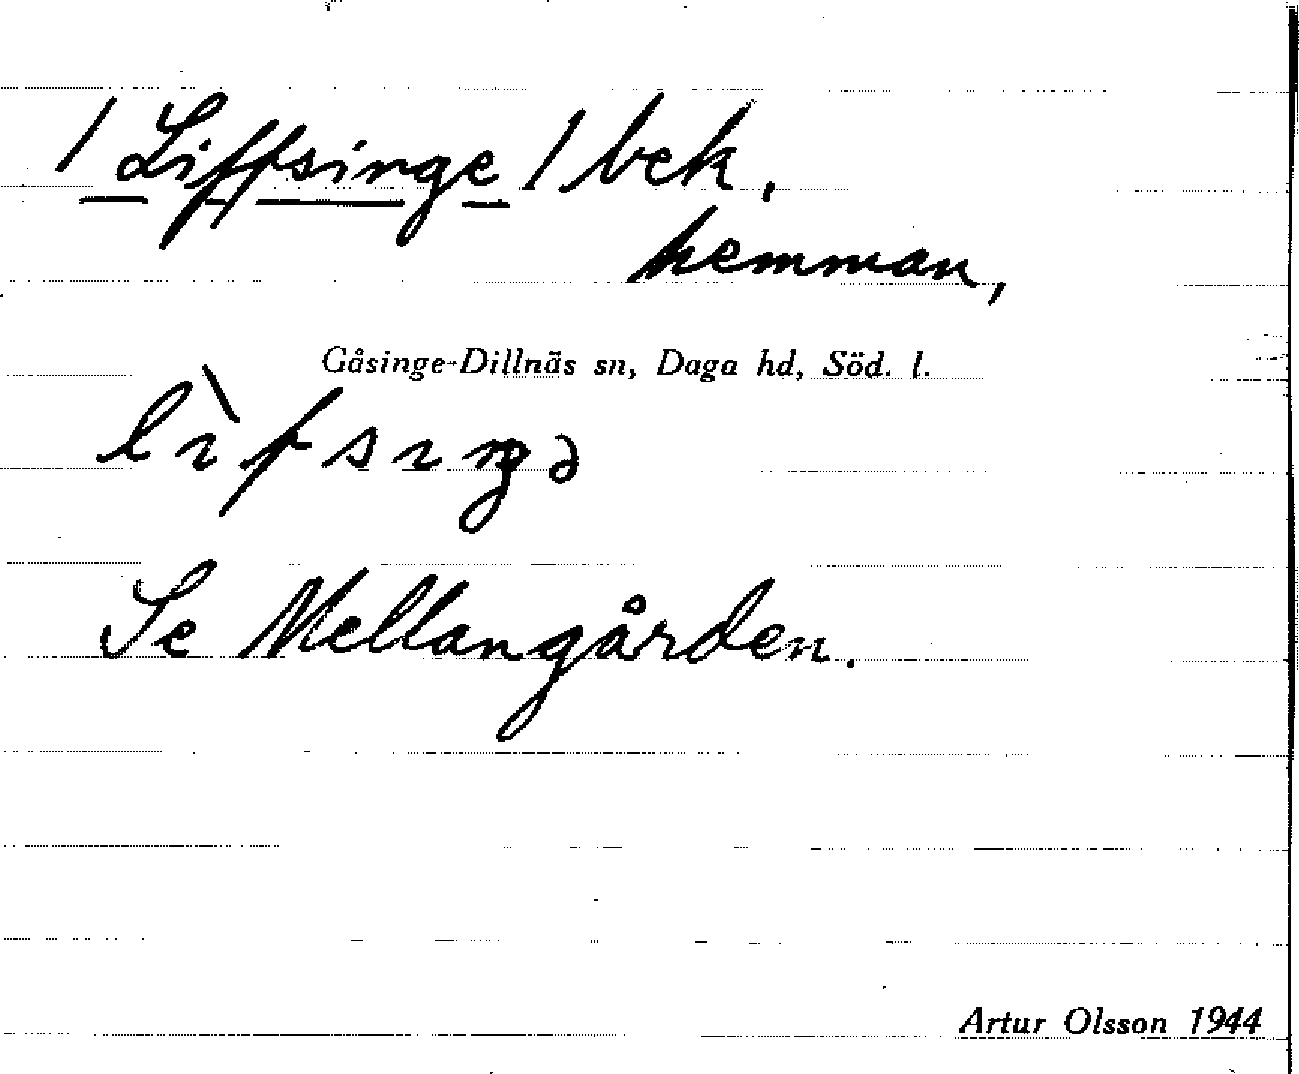 / Liffsinge / bek,
hemman,
Gåsinge-Dillnäs sn, Daga hd, Söd. l.
lìfsıŋə
Se Mellangården.
Artur Olsson 1944